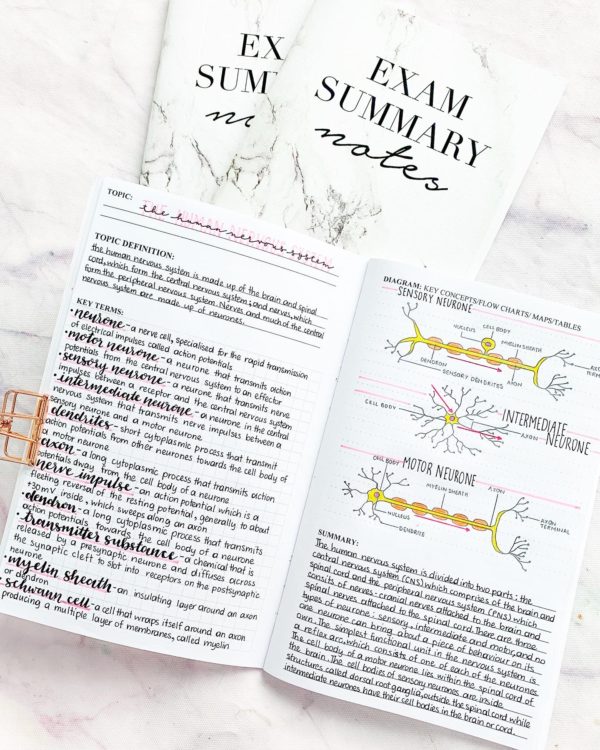 EX
SUMM
n
EXAM
SUMMARY
notes
TOPIC: THE HUMAN NERVOUS SYSTEM
the human nervous system
TOPIC DEFINITION:
the human nervous system is made up of the brain and spinal
cord, which form the central nervous system; and nerves, which
form the peripheral nervous system. Nerves and much of the central
nervous system are made up of neurones.
KEY TERMS:
•neurone - a nerve cell, specialised for the rapid transmission
of electrical impulses called action potentials
•motor neurone - a neurone that transmits action
potentials from the central nervous system to an effector
•sensory neurone - a neurone that transmits nerve
impulses between a receptor and the central nervous system
•intermediate neurone - a neurone in the central
nervous system that transmits nerve impulses between a
sensory neurone and a motor neurone.
•dendrites - short cytoplasmic process that transmit
action potentials from other neurones towards the cell body of
a motor neurone
•axon - a long cytoplasmic process that transmits action
potentials away from the cell body of a neurone
•nerve impulse - an action potential which is a
fleeting reversal of the resting potential, generally to about
+30mV inside, which sweeps along an axon
•dendron - a long cytoplasmic process that transmits
action potentials towards the cell body of a neurone
•transmitter substance - a chemical that is
released by a presynaptic neurone and diffuses across
the synaptic cleft to slot into receptors on the postsynaptic
neurone
•myelin sheath - an insulating layer around an axon
or dendron
•schwann cell - a cell that wraps itself around an axon
producing a multiple layer of membranes, called myelin
DIAGRAM: KEY CONCEPTS/FLOW CHARTS/ MAPS/TABLES
SENSORY NEURONE
NUCLEUS
CELL BODY
MYELIN SHEATH
DENDRON
SENSORY DENDRITES
AXON
AXON
INTERMEDIATE
NEURONE
CELL BODY
AXON
MOTOR NEURONE
CELL BODY
MYELIN SHEATH
AXON
AXON
TERMINAL
NUCLEUS
DENDRITE
SUMMARY:
The human nervous system is divided into two parts: the
central nervous system (CNS) which comprises of the brain and
spinal cord and the peripheral nervous system (PNS) which
consits of nerves: cranial nerves attached to the brain and
spinal nerves attached to the spinal cord. There are three
types of neurone: sensory, intermediate and motor, and no
one neurone can bring about a piece of behaviour on its
own. The simplest functional unit in the nervous system is
a reflex arc, which consists of one of each of the neurones.
The cell body of a motor neurone lies within the spinal cord of
the brain. The cell bodies of sensory neurones are inside
structures called dorsal root ganglia, outside the spinal cord while
intermediate neurones have their cell bodies in the brain or cord.